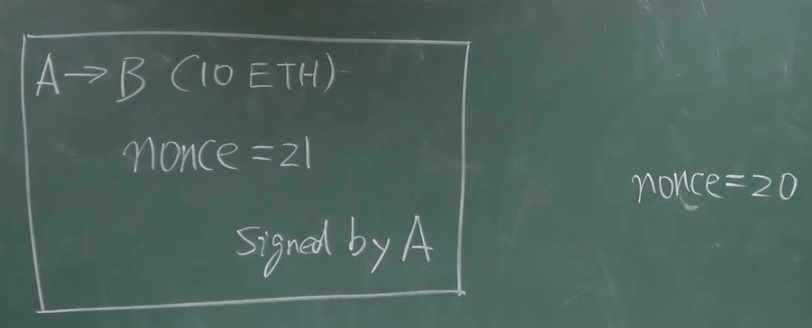 A→B (10 ETH)
nonce=21
signed by A
nonce=20